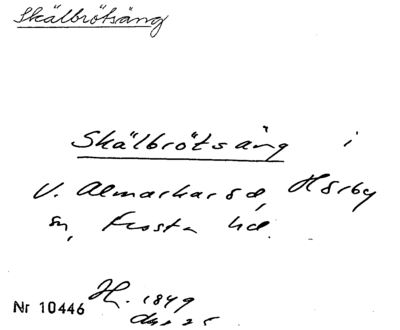 Skälbrötsäng
Skälbrötsäng i
V. Almarkaröd, Hörby
sn, Frosta hd.
H. 1849
Nr 10446